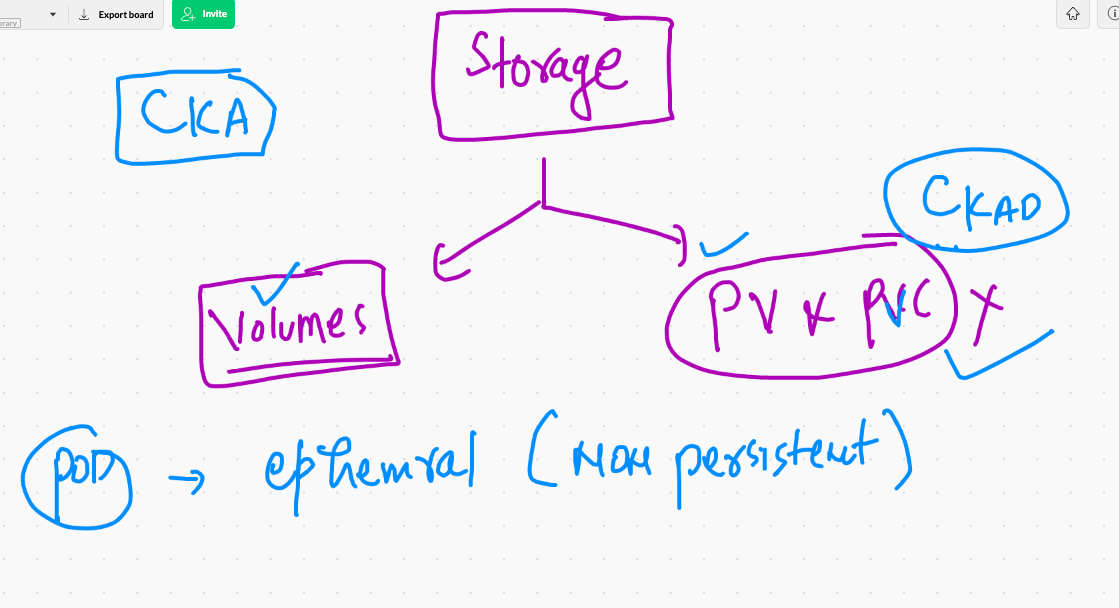 Export board Invite
Storage
CKA
CKAD
Volumes
PV & PVC
POD → ephemral (Non persistent)